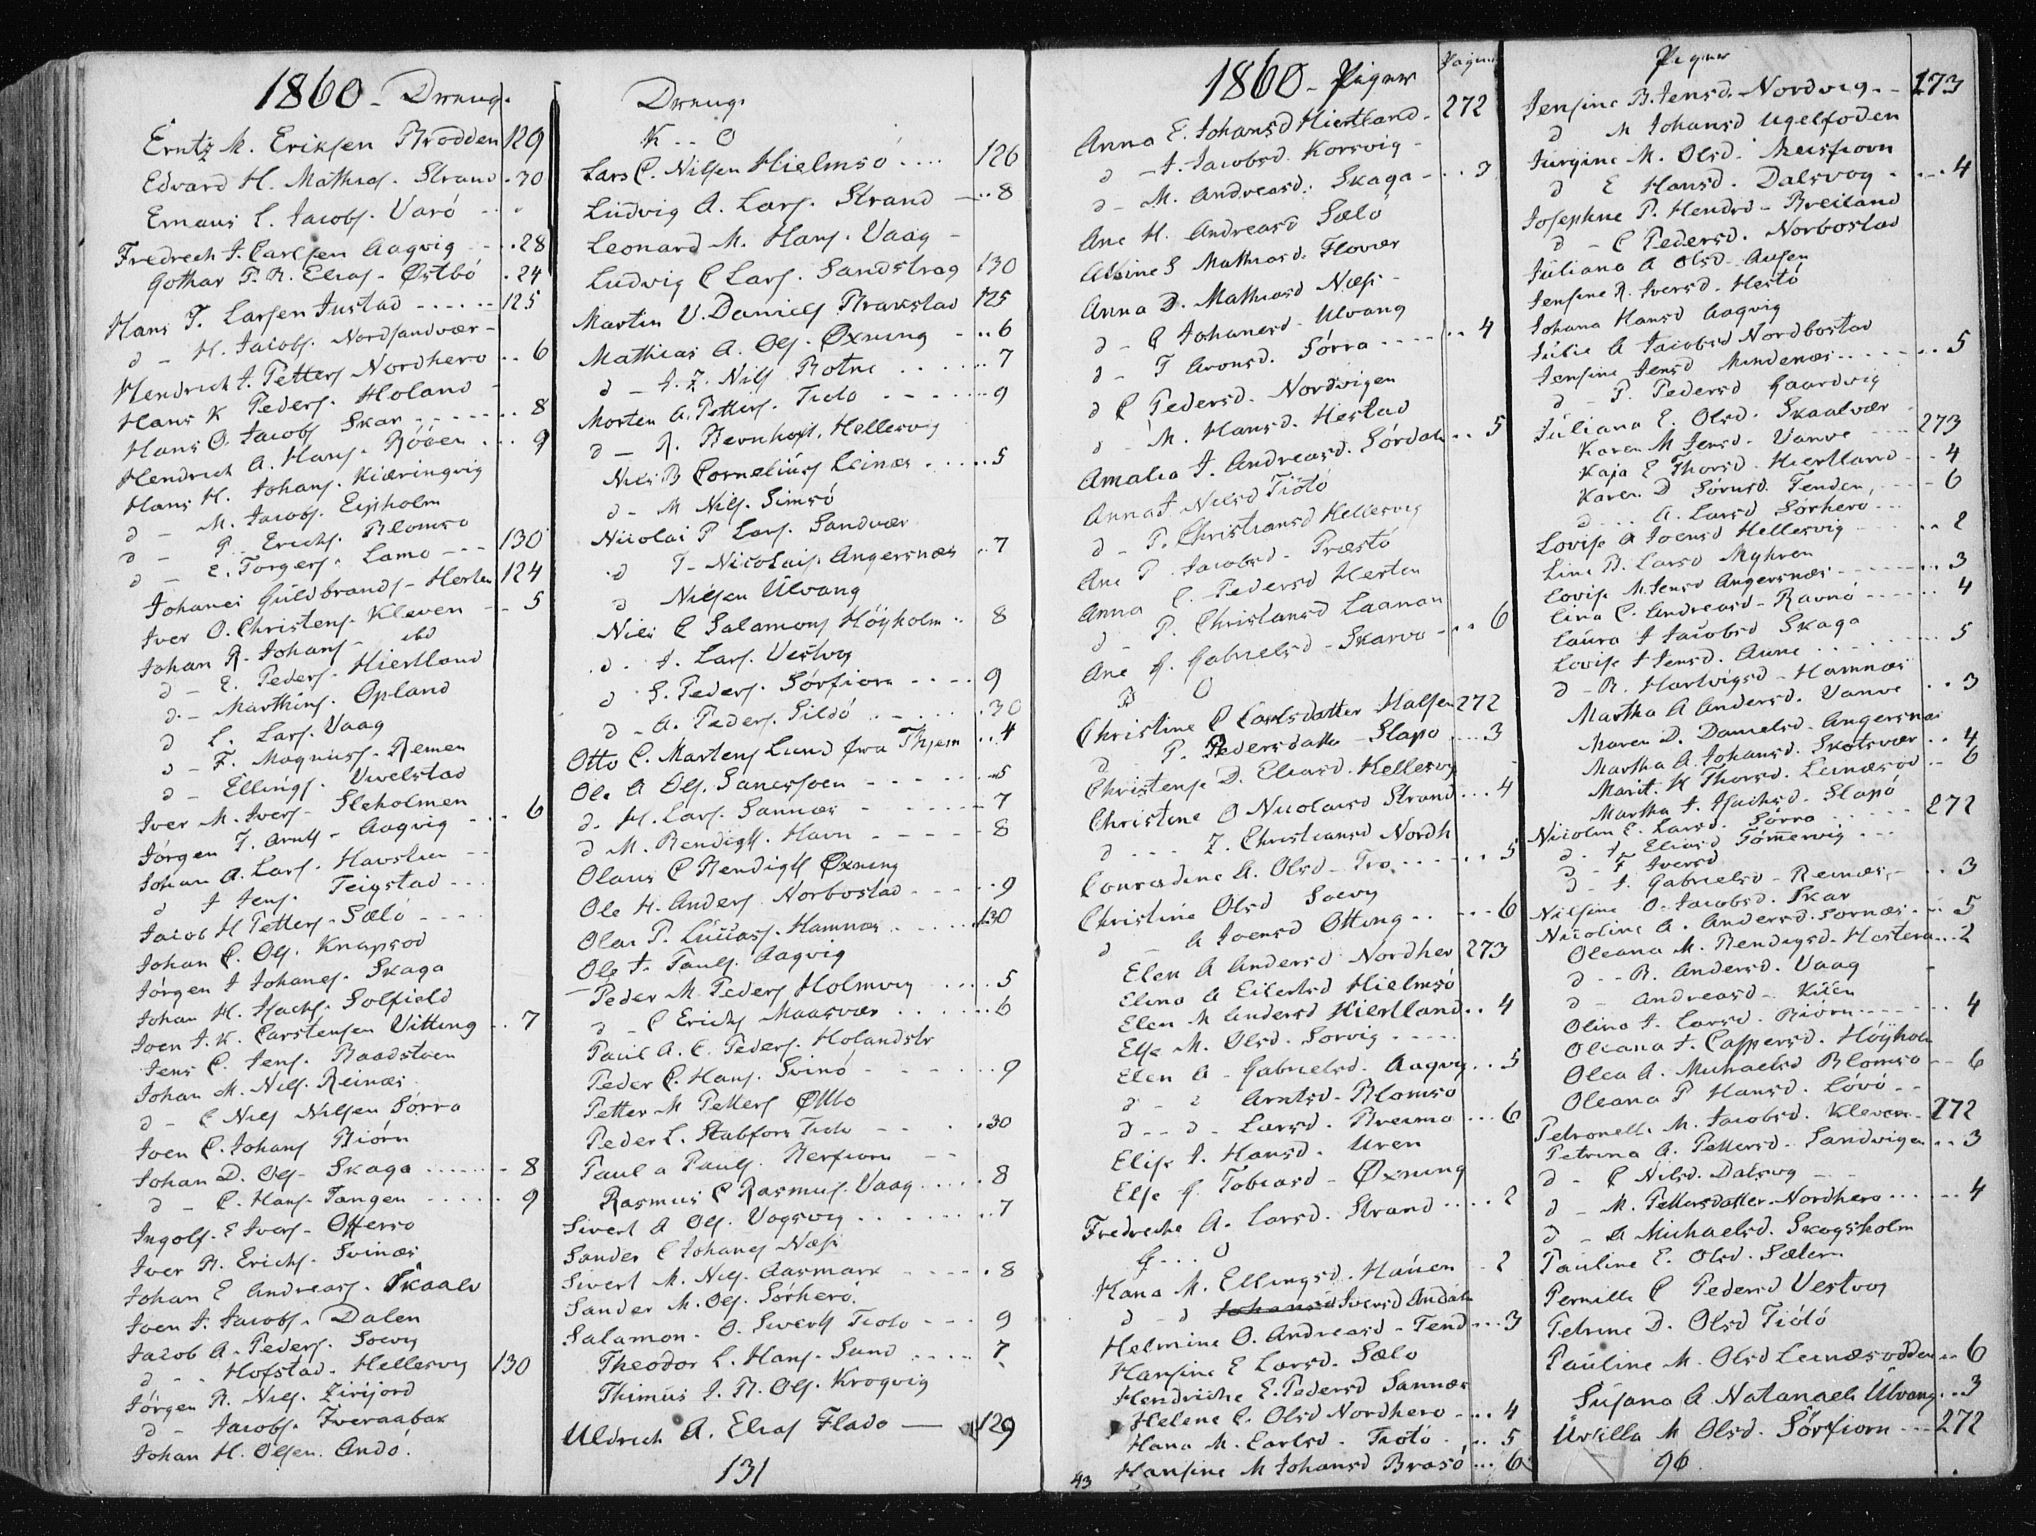 1860 - Dreng.
Erntz M. Eriksen Brodden 129
Edvard H. Mathias. Strand . 30
Emaus L. Jacobs. Varö - .
Fredrech J. Carlsen Aagvig - . . 28
Gothar P. R. Elias - Østbö . 24
Hans T. Larsen Justad . . . . . . 125
d - H. Jacobs. Nordsandvær -
Hendrich J. Petters Nordherö . . 6
Hans K Peders. Holand -
Hans O. Jacobs Skar . . . . . . . . 8
Hendrich A. Hans. Rööen . . . . 9
Hans H. Johans. Kiæringvig
d - M. Jacobs. Eisholm
d - P. Erichs. Blomsö
d - E. Torgers. Lamo - - - 130
Johanes Guldbrands - Herten 124
Iver O. Christens. Kleven - - 5
Johan R. Johans - ibd
d - E. Peders. Hiertland
d. - Marthins. Opland
d L. Lars. Vaag
d - F. Magnuss. Remen
d - Ellings. Vivelstad
Iver M. Ivers. Sleholmen
Jörgen J. Arnts - Aagvig - . . 6
Johan A. Lars. Havstein - -
d J Jens. Teigstad . . .
Jacob H Petters. Sælö . . . .
Johan C. Ols. Knapsöd
Jörgen J Johanes. Skaga
Johan H. Isachs. Solfield
Joen J. K. Carstensen Vitting . . 7
Jens C. Jens. Baadstoen
Johan M. Nils. Reinæs
d - C Nils Nilsen Sörra
Joen C. Johans Biörn
Johan D. Ols - Skaga . . . . . . . 8
d - C. Hans. Tangen . . . . . . 9
Ingolf. E Ivers - Offersö
Iver B. Erichs. Svinæs
Johan E Andreass. Skaalv
Joen J. Jacobs. Dalen
Jacob A. Peders. Soevig
d - . Hofstad - Hellesvig 130
Jörgen B. Nils. Zirifjord
d - Jacobs. Tveraabak
Johan H. Olsen. Andö.
Dreng.
K . . O
Lars C. Nilsen Hielmsö . . . . 126
Ludvig A. Lars. Strand - . . 8
Leonard M. Hans. Vaag -
Ludvig C Lars. Sandstrag 130
Martin U. Daniels Brækstad 125
Mathias A. Ols. Øxning - . . 6
d - J. Z. Nils Botne . . . . . . 7
Morten A. Petters. Tiötö - - - - . . 9
d - R. Bernhoft. Hellesvig
Nils B Cornelius Leines . . . . . . 5
d - M Nils. Simsö
Nicolai P Lars. Sandvær
d J - Nicolais. Angersnæs . . 7
d Nilsen Ulvang
Nils C Salamons Höyholm . . 8
d. J. Lars. Vestvog
d S. Peders. Sörfiorn . . . . 9
d - A. Peders. Sildö . . . . . . . 30
Otto C. Martens Lund fra Thjem . . 4
Ole A Ols. Sanersoen - - - - . . 5
d. H. Lars. Sannæs - - - - - - 7
d M. Bendigts. Havn - - - - - 8
Olaus C Bendigts Øxning
Ole H. Anders Norbostad - - - - . . 9
Olai P. Lucass. Hamnæs . . . . . . 130
Ole J. Pauls. Aagvig
Peder M. Peders Holmvig . . . . . 5
d - C Erichs Maasvær . . . . . . 6
Paul A. C. Peders. Holandstr
Peder C. Hans. Svinö - - - - . . 9
Petter M Petters Øttbo
Peder L. Stabfors Tiötö - - . . 30
Paul A Pauls. Bersiorn - -
Rasmus C Rasmus. Vaag . . . . . 8
Sivert A Ols. Vogsvig . . . . . . . 7
Sander C Johanes Næss
Sivert M. Nils. Aasmark - - - - . 8
Sander M. Ols. Sörherö.
Salamon - O. Siverts Tiötö - - - 9
Theodor L. Hans. Sund . . . . . 7
Thimus J. B. Ols. Krogvig
Uldrich A. Elias Fladö — 129
131
1860 - Piger Pagina
Anna E. Johansd Hiertland - 272
d - J. Jacobsd. Korsvig -
d - M. Andreasd. Skaga - . . 3
Ane H. Andreasd Sælö
Albine S Mathiasd. Flovær
Anna D. Mathiasd Næss -
d - C Johanesd - Ulvang
d - T Aronsd. Sörra . . . . . . . 4
d C Pedersd. Nordvigen
d - M. Hansd. Hestad
Amalia J. Andreasd. Sördal . . 5
Anna J Nilsd Tiötö
d - P. Christiansd Hellesvig
Ane P. Jacobsd - Præstö
Anna C. Pedersd Herten
d - P. Christiansd Laanan
Ane G. Gabrielsd - Skarvo - . . 6
B O
Christine C Carlsdatter Halsen 272
d P. Pedersdatter - Slapö . . . . 3
Christense D. Eliasd. Hellesvg
Christine O Nicolaisd Strand . . . 4
d - - - Z. Christiansd Nordh
Conradine A. Olsd - Tro . . . . . . . 5
Christine Olsd Soevg
d - A Joensd Otting . . - . . . 6
Elen A Andersd Nordher 273
Elina A Eilertsd Hielmsö
Elen M Andersd Hiertland . . 4
Else M. Olsd. Sorvig . . . . .
Elen A - Gabrielsd. Aagvg . . 5
d - - Arntsd - Blomsö
d - - d - Larsd. Breimo . . . 6
Elise J. Hansd. Uren
Else G Tobiasd - Øxning
Fredriche A. Larsd. Strand . . . . 2
G . . . O
Hana M. Ellingsd. Hauen - 2
d - d Johansd Iversd Andals
Helmine O. Andreasd - Tend . . . 3
Hansine E Larsd. Sælö
Hendriche E. Pedersd Sannæs
Helene C. Olsd Nordherö - . . . 4
Hana M. Earlsd. Tiötö . . . 5
43 Hansine M Johansd Brasö . . . 6
Piger
Jensine B. Jensd. Nordvig - - 273
d M Johansd Ugelfoden
Jürgine M. Olsd. Meisfiorn
d E Hansd. Dalsvog . . . . 4
Josephine P. Hendrd - Breiland
d - C Pedersd. Norbostad
Juliana A Olsd - Ausen
Jensine R. Iversd. Hestö
Johana Hansd Aagvig
Julie A Jacobsd Nordbostad
Jensine Jensd Mindenæs . . . . . . . 5
d - P. Pedersd Gaardvig
Juliana E. Olsd. Skaalvær
Karen M Jensd. Vanve . . . . 273
Kaja E Thorsd. Hiertland - - 4
Karen D Sörensd. Tenden, - - - 6
d . . . A. Larsd Sörherö . . .
Lovise A Joensd Hellesvig - - - . . 2
Line B. Larsd Myhren
Lovise M. Jensd Angersnæs - - - . . . 3
Lina C. Andreasd - Ravnö . . . . . . 4
Laura J Jacobsd Skaga
Lovise J Jensd. Aune . . . . . . . . . 5
d - B. Hartvigsd - Hamnæs
Martha A Andersd. Vanve . . 3
Maren D. Danielsd. Angersnæs
Martha A. Johansd. Skotsvær . . 4
Marit. K Thorsd. Leinesöd - . 6
Martha J. Isachsd. Slapö
Nicolin E. Larsd. Sörra . . . . . . 272
d. J. Eliasd Tömervig . . .
d - F Iversd
d - J. Gabrielsd - Reinæs, - . . 3
Nilsine O. Jacobsd. Skar
Nicoline A. Andersd. Sornæs . . . 5
Oleana M. Bendigsd. Hestern . . . 2
d - - B. Andersd. Vaag
d - Andreasd - Kuen
Olina J. Larsd. Biörn - - - - . . 4
Oleana J. Caspersd. Höyholm
Olea A. Michaelsd Blomsö - - 6
Oleana P Hansd. Lövö - -
Petronelle M. Jacobsd. Kleven - 272
Petrina A. Pettersd - Sandvigen . . 3
d - C Nilsd. Dalsvog - -
d - M. Pettersdatter. Nordherö . . . . . . 4
d - A Michaelsd. Skogsholm
Pauline E. Olsd. Sælen
Pernille C Pedersd Vestvog
Petrine D. Olsd Tiötö
Pauline M. Olsd Leinesodden . . 6
Susana A Natanaels Ulvang . . 3
Ursilla M Olsd. Sörfiorn - - - 272
96